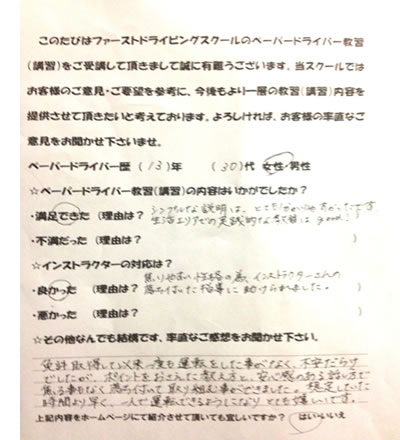 このたびはファーストドライビングスクールのペーパードライバー教習
(講習)をご受講して頂きまして誠に有難うございます。当スクールでは
お客様のご意見・ご要望を参考に、今後もより一層の教習(講習)内容を
提供させて頂きたいと考えております。よろしければ、お客様の率直なご
意見をお聞かせ下さいませ。
ペーパードライバー歴 (13)年 (30)代 女性・男性
☆ペーパードライバー教習(講習)の内容はいかがでしたか?
・満足できた (理由は? シンプルな説明は、とても分かりやすかったです。
生活エリアでの実践的な教習は good!)
・不満だった (理由は? )
☆インストラクターの対応は?
・良かった (理由は? 焦りやすい性格の為、インストラクターさんの
落ち付いた指導に助けられました。)
・悪かった (理由は? )
☆その他なんでも結構です、率直なご感想をお聞かせ下さい。
免許取得して以来一度も運転をした事がなく、不安だらけ
でしたが、ポイントをおさえた教え方と、安心感のある話し方で
焦る事もなく落ち付いて取り組む事ができました。想定していた
時間より早く、一人で運転できるようになりとても嬉しいです。
上記内容をホームページにて紹介させて頂いても宜しいですか? はい・いいえ